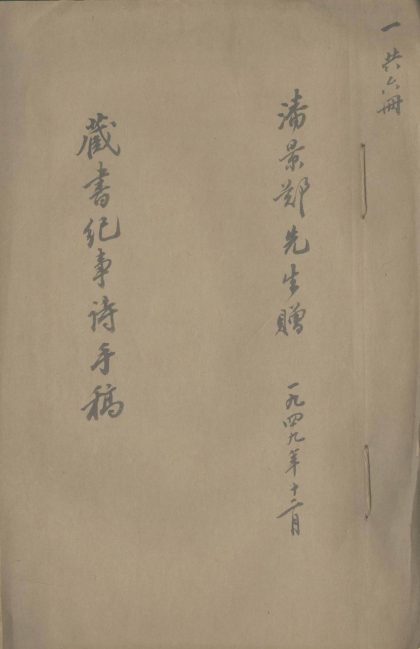 一 共六冊
潘景郑先生贈 一九四九年十二月
藏書纪事诗手稿